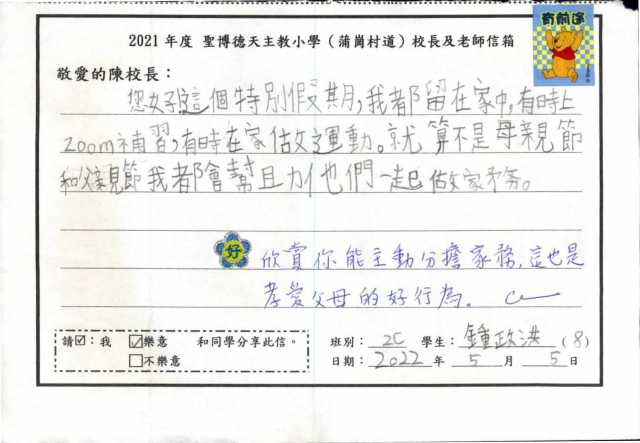 2021 年度 聖博德天主教小學（蒲崗村道）校長及老師信箱
有前途
敬愛的陳校長：
您好!這個特別假期,我都留在家中,有時上
zoom補習,有時在家做運動。就算不是母親節
和父親節我都會幫助他們一起做家務。
好 欣賞你能主動分擔家務,這也是
孝愛父母的好行為。
請☑：我 ☑樂意 和同學分享此信。
□不樂意
班別： 2C 學生：鍾政洪 (8)
日期：2022 年 5 月 5 日